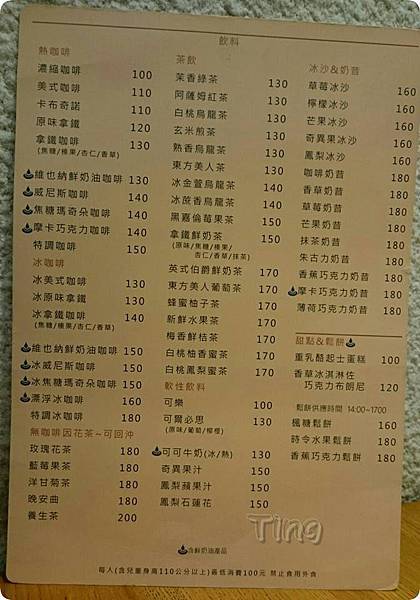 飲料
熱咖啡
濃縮咖啡 100
美式咖啡 110
卡布奇諾 110
原味拿鐵 120
拿鐵咖啡 130
(焦糖/榛果/杏仁/香草)
維也納鮮奶油咖啡 130
威尼斯咖啡 140
焦糖瑪奇朵咖啡 140
摩卡巧克力咖啡 140
特調咖啡 150
冰咖啡
冰美式咖啡 130
冰原味拿鐵 130
冰拿鐵咖啡 140
(焦糖/榛果/杏仁/香草)
維也納鮮奶油咖啡 150
冰威尼斯咖啡 150
冰焦糖瑪奇朵咖啡 150
漂浮冰咖啡 160
特調冰咖啡 180
無咖啡因花茶~可回沖
玫瑰花茶 180
藍莓果茶 180
洋甘菊茶 180
晚安曲 180
養生茶 200
茶飲
茉香綠茶 130
阿薩姆紅茶 130
白桃烏龍茶 130
玄米煎茶 130
熟香烏龍茶 130
東方美人茶 130
冰金萱烏龍茶 140
冰蔗香烏龍茶 150
黑嘉倫莓果茶 150
拿鐵鮮奶茶 150
(原味/焦糖/榛果/
杏仁/香草/抹茶)
英式伯爵鮮奶茶 170
東方美人葡萄茶 170
蜂蜜柚子茶 170
新鮮水果茶 170
梅香鮮桔茶 170
白桃柚香蜜茶 170
白桃鳳梨蜜茶 170
軟性飲料
可樂 100
可爾必思 130
(原味/葡萄/柳橙)
可可牛奶(冰/熱) 130
奇異果汁 150
鳳梨蘋果汁 150
鳳梨石蓮花 150
冰沙&奶昔
草莓冰沙 160
檸檬冰沙 160
芒果冰沙 160
奇異果冰沙 160
鳳梨冰沙 160
咖啡奶昔 180
香草奶昔 180
草莓奶昔 180
芒果奶昔 180
抹茶奶昔 180
朱古力奶昔 180
香蕉巧克力奶昔 180
摩卡巧克力奶昔 180
薄荷巧克力奶昔 180
甜點&鬆餅
重乳酪起士蛋糕 100
香草冰淇淋佐
巧克力布朗尼 120
鬆餅供應時間 14:00~1700
楓糖鬆餅 160
時令水果鬆餅 180
香蕉巧克力鬆餅 180
Ting
含鮮奶油產品
每人(含兒童身高110公分以上)最低消費100元 禁止食用外食